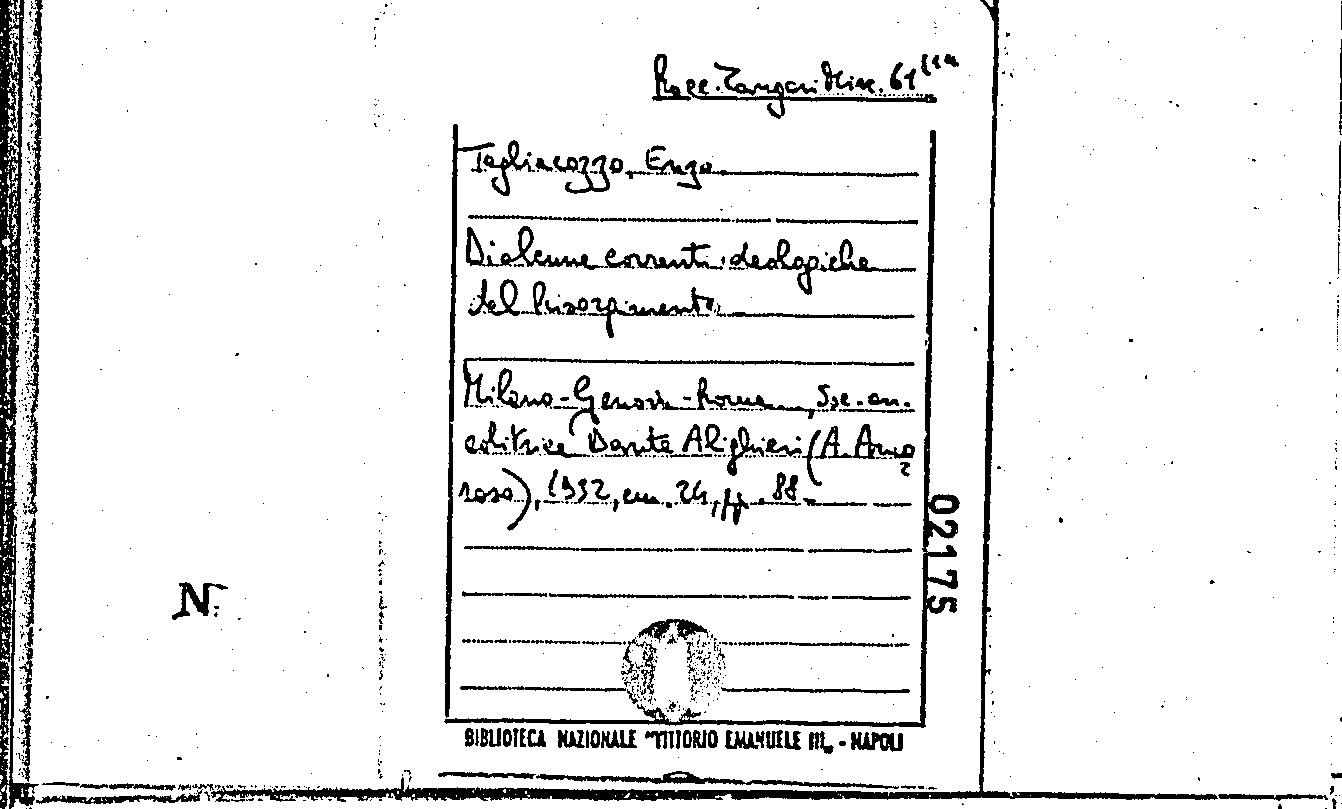 Racc. Zangari Misc. 61
Tagliacozzo, Enzo.
Di alcune correnti ideologiche
del Risorgimento
Milano-Genova-Roma, Soc. an.
editrice Dante Alighieri (A. Amo
roso), 1932, cm. 24, pp. 88.
02175
N.
BIBLIOTECA NAZIONALE "VITTORIO EMANUELE III" - NAPOLI